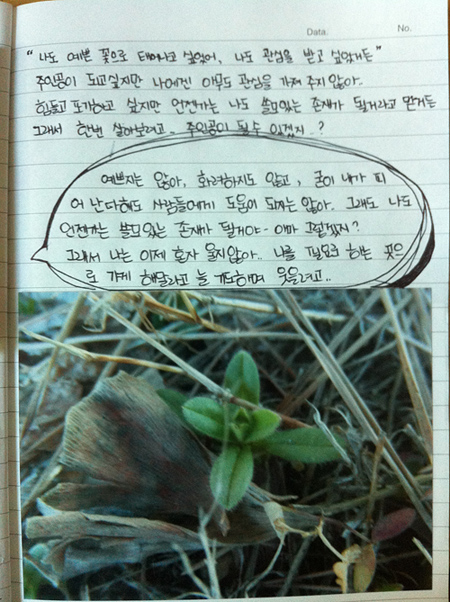 Data. No.
" 나도 예쁜 꽃으로 태어나고 싶었어, 나도 관심을 받고 싶었거든"
주인공이 되고싶지만 나에겐 아무도 관심을 가져 주지 않아..
힘들고 포기하고 싶지만 언젠가는 나도 쓸모있는 존재가 될거라고 믿거든
그래서 한번 살아보려고.. 주인공이 될 수 있겠지..?
예쁘지는 않아, 화려하지도 않고, 굳이 내가 피
어 난다해도 사람들에게 도움이 되지는 않아. 그래도 나도
언젠가는 쓸모있는 존재가 될거야- 아마 그렇겠지?
그래서 나는 이제 혼자 울지않아.. 나를 필요로 하는 곳으
로 가게 해달라고 늘 기도하며 웃을려고..